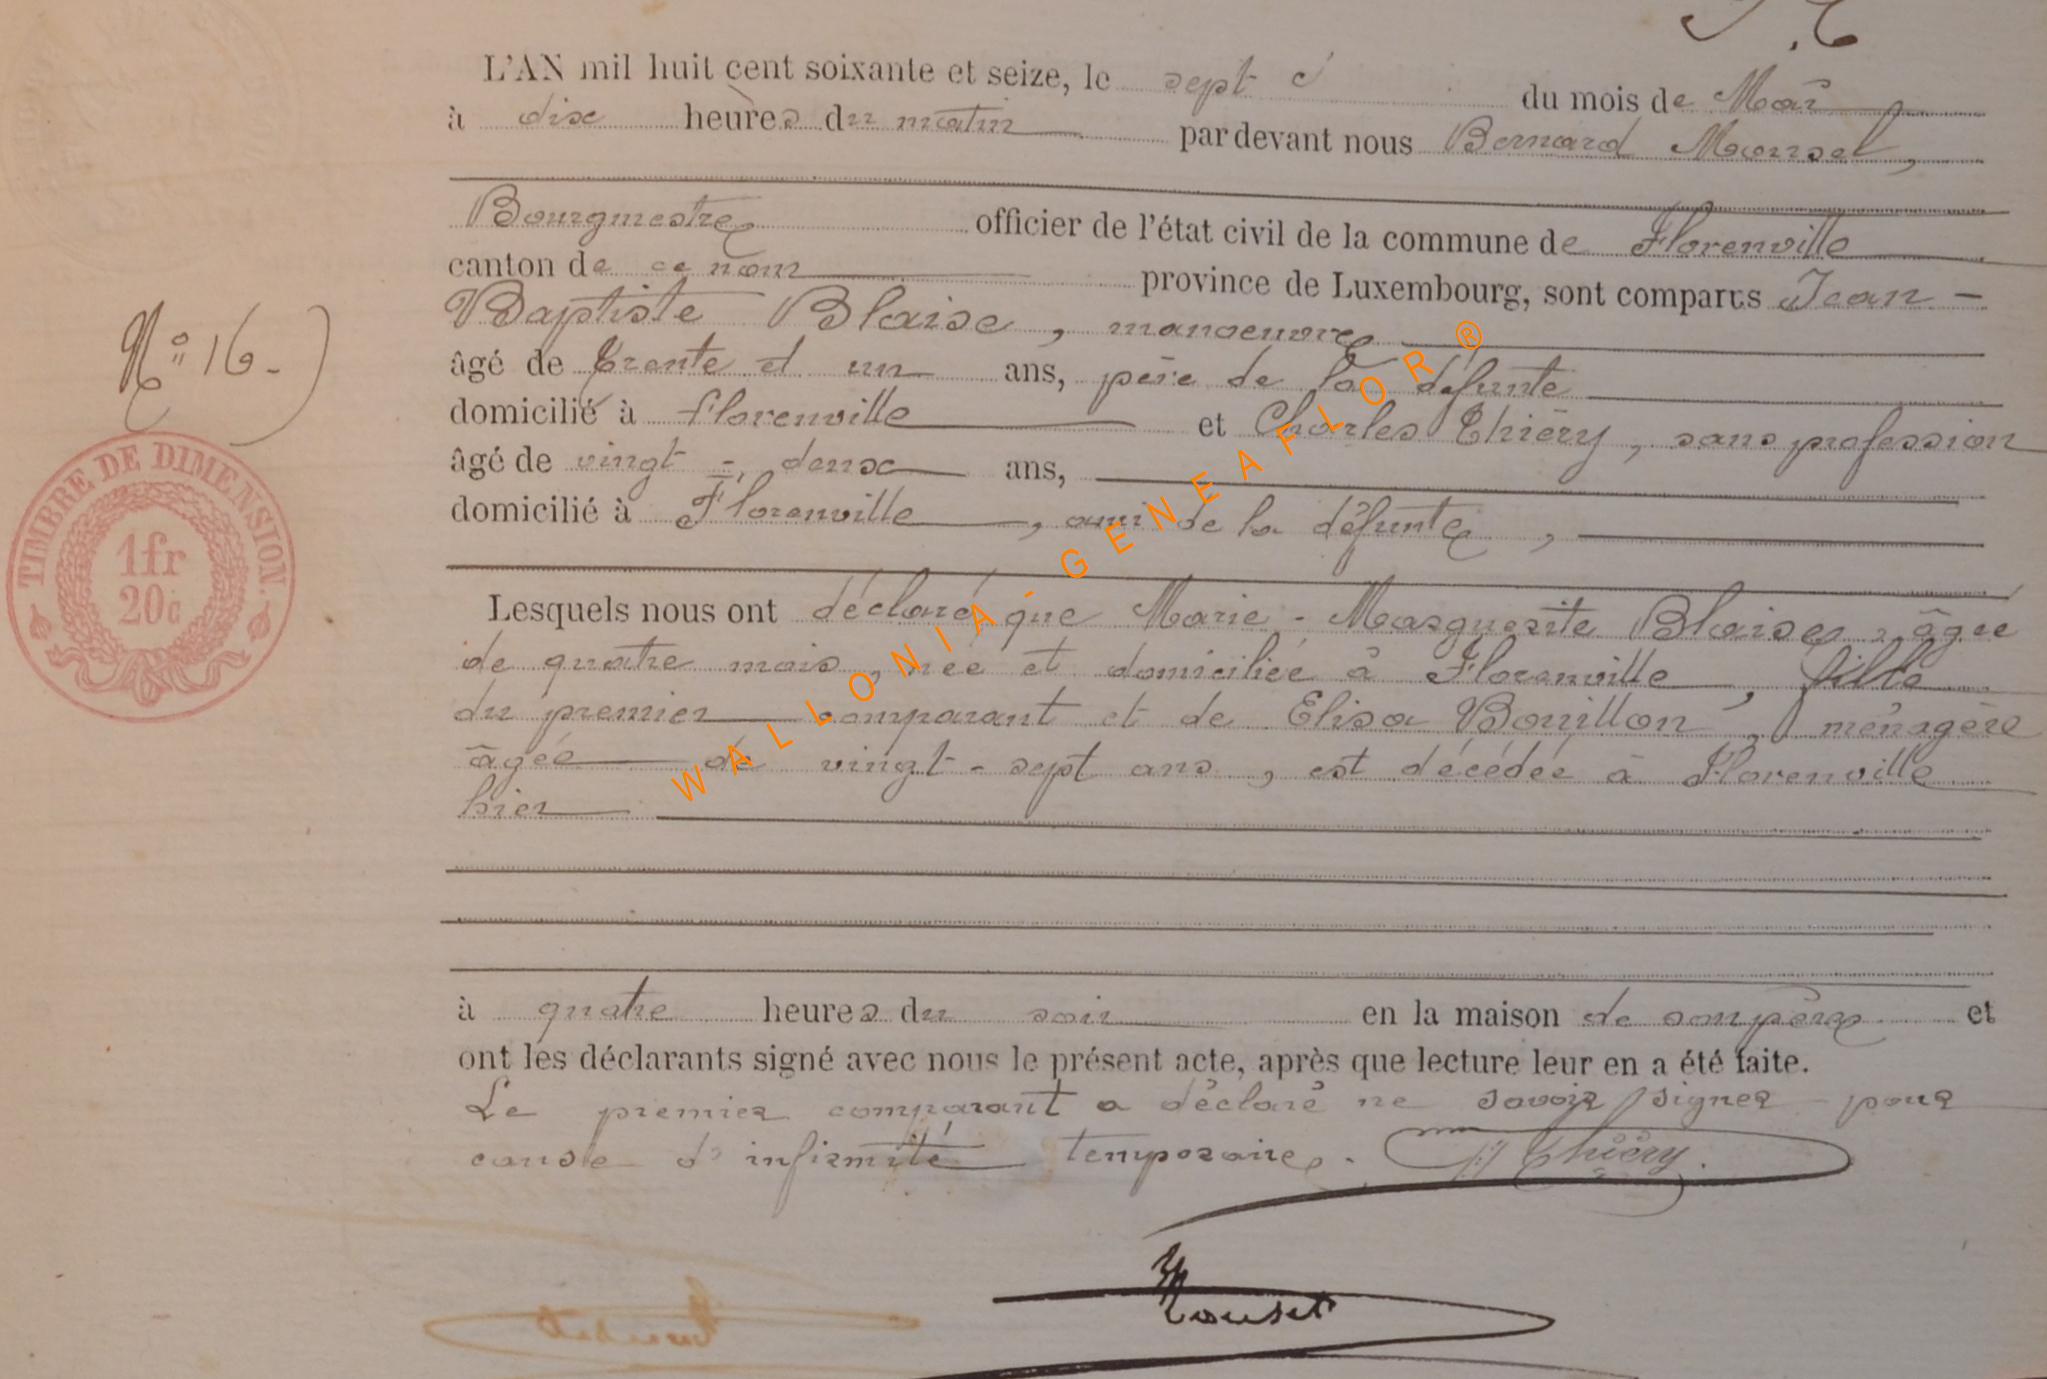 L'AN mil huit cent soixante et seize, le sept du mois de Mai
à dix heures du matin par devant nous Bernard Mousel,
Bourgmestre officier de l'état civil de la commune de Florenville
canton de ce nom province de Luxembourg, sont comparus Jean -
Baptiste Blaise, manoeuvre
N° 16.)
âgé de trente et un ans, père de la défunte
domicilié à florenville et Charles Thiéry, sans profession
âgé de vingt - deux ans,
domicilié à Florenville, ami de la défunte,
Lesquels nous ont déclaré que Marie - Marguerite Blaise, âgée
de quatre mois, née et domiciliée à Florenville, fille
du premier comparant et de Elisa Bouillon, ménagère
âgée de vingt - sept ans, est décédée à Florenville
hier
à quatre heures du soir en la maison de son père et
ont les déclarants signé avec nous le présent acte, après que lecture leur en a été faite.
Le premier comparant a déclaré ne savoir signer pour
cause d'infirmité temporaire. Thiéry.
Mouset
TIMBRE DE DIMENSION.
1fr
20c
WALLONIA-GENEAFLOR®